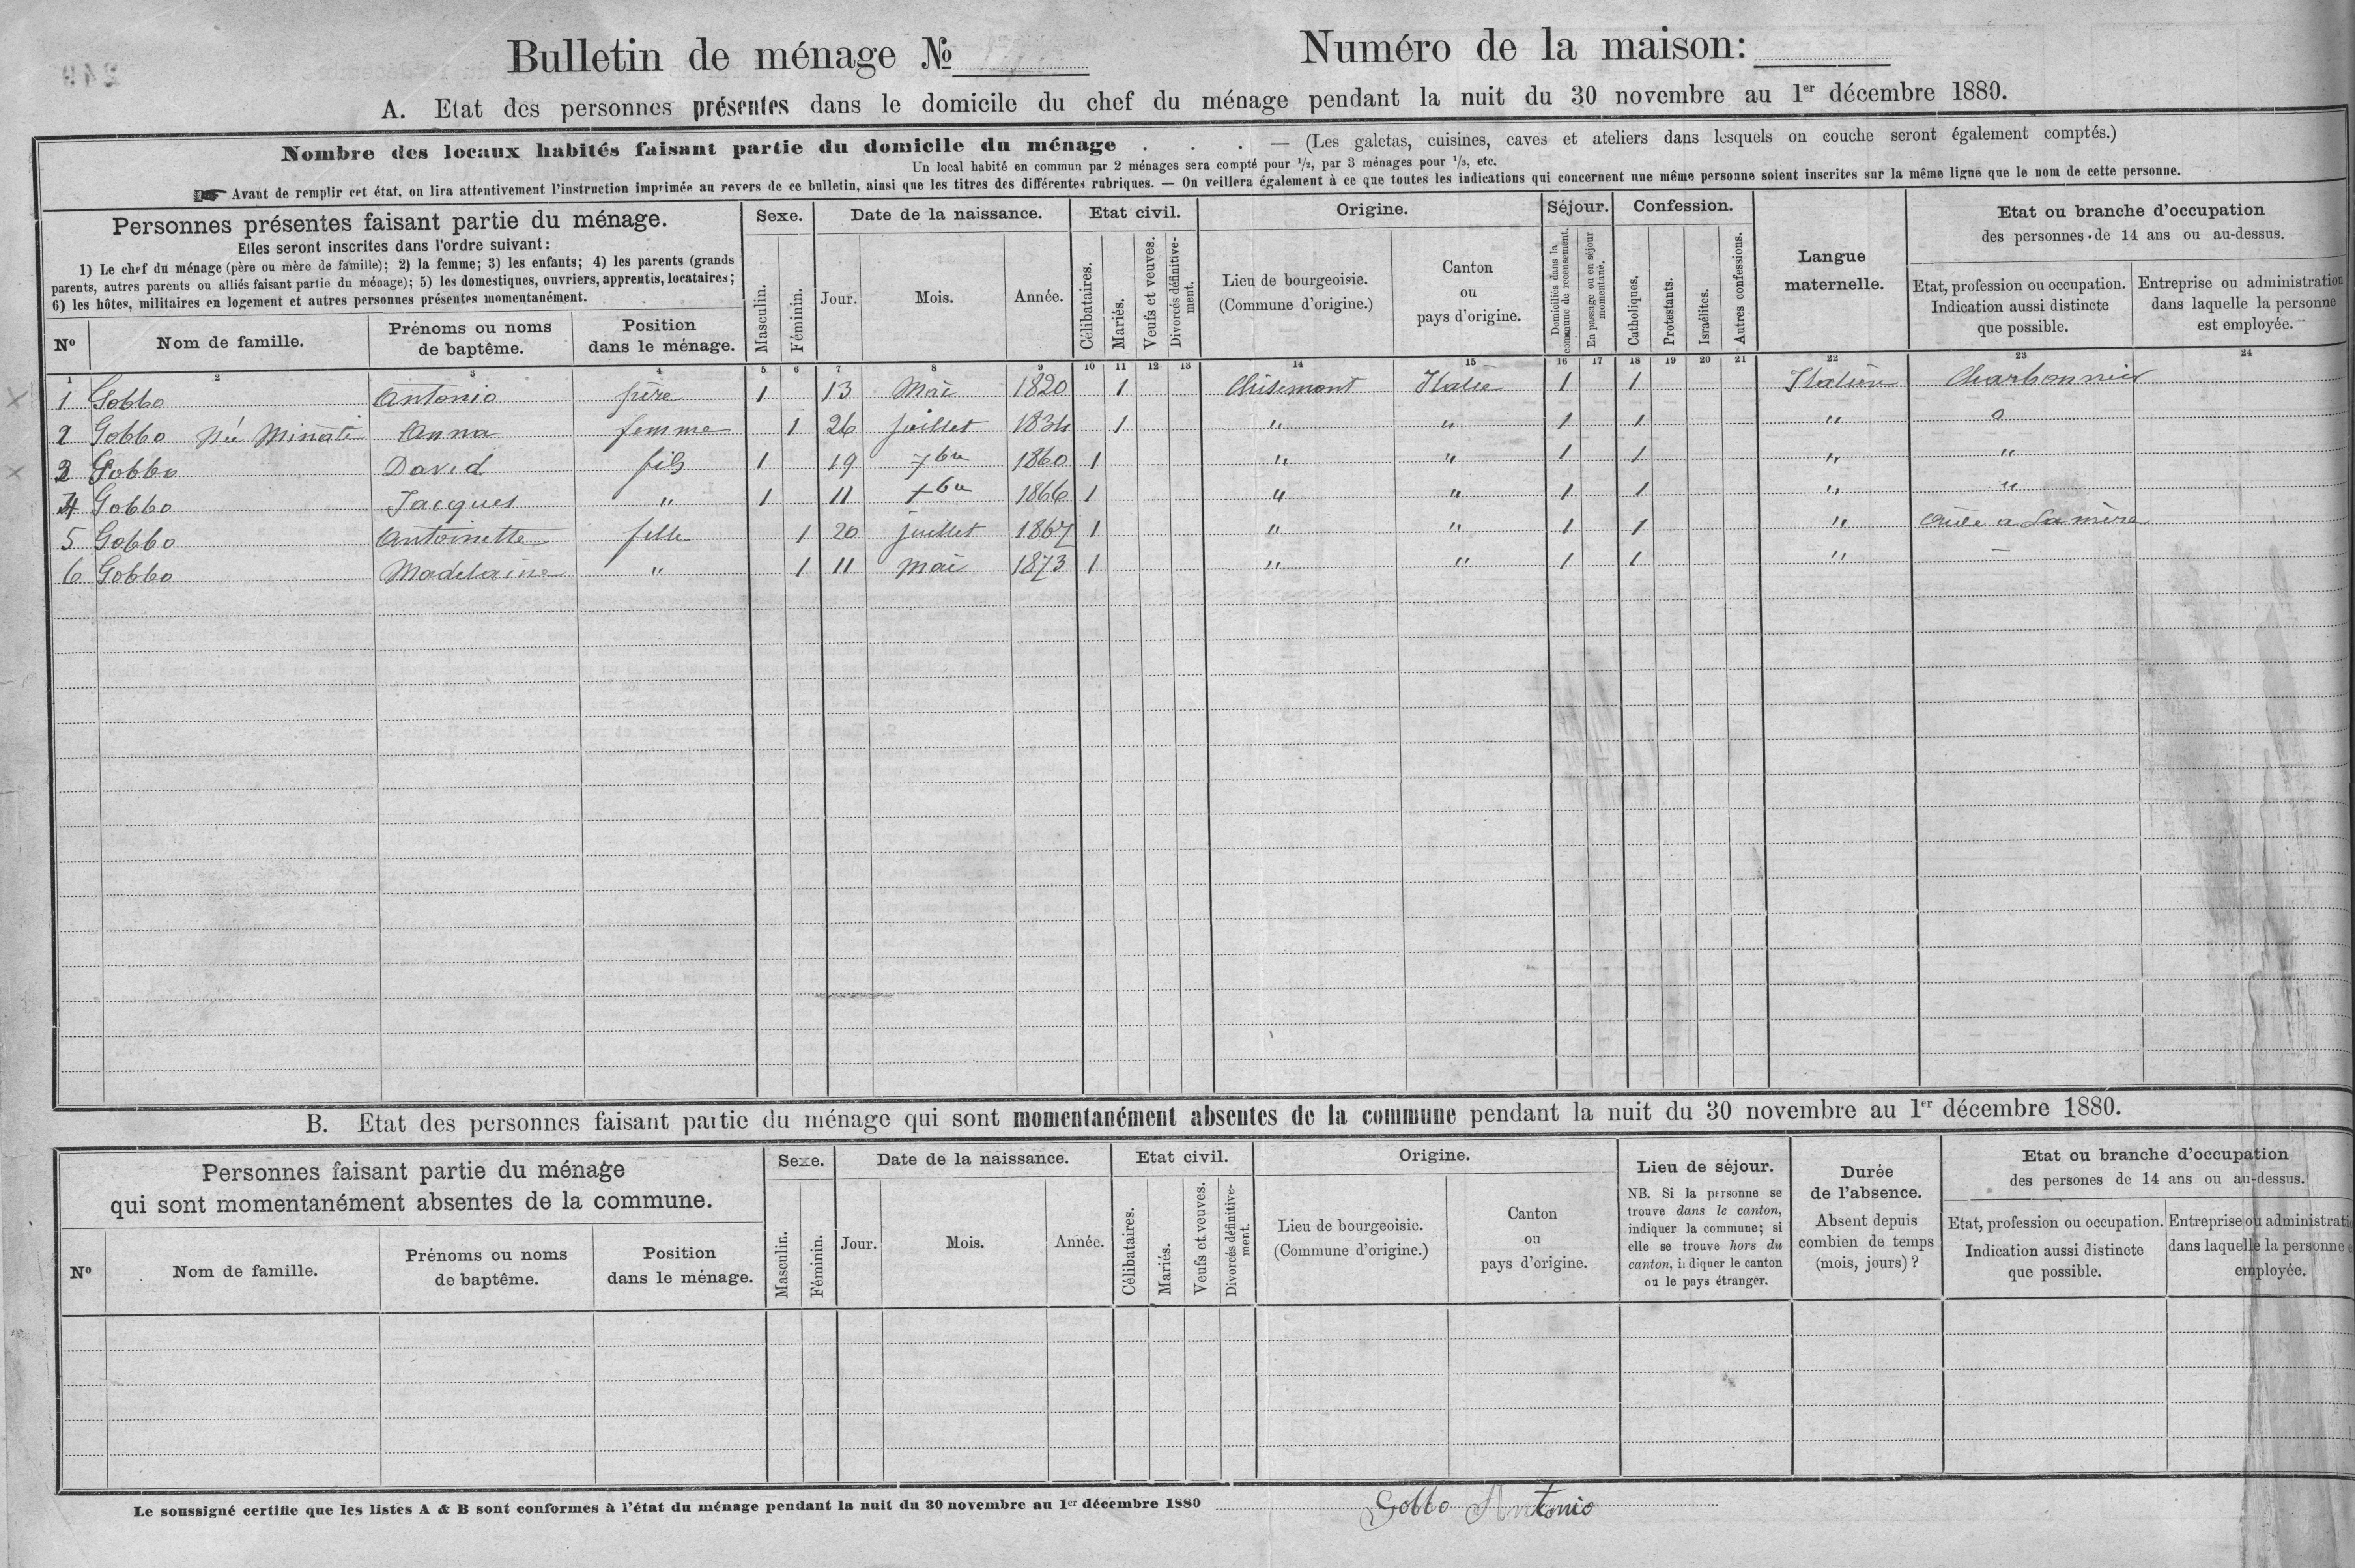 Bulletin de ménage №
Numéro de la maison:
A. Etat des personnes présentes dans le domicile du chef du ménage pendant la nuit du 30 novembre au 1er décembre 1880.
Nombre des locaux habités faisant partie du domicile du ménage . . . — (Les galetas, cuisines, caves et ateliers dans lesquels on couche seront également comptés.)
Un local habité en commun par 2 ménages sera compté pour 1/2, par 3 ménages pour 1/3, etc.
☛ Avant de remplir cet état, on lira attentivement l'instruction imprimée au revers de ce bulletin, ainsi que les titres des différentes rubriques. — On veillera également à ce que toutes les indications qui concernent une même personne soient inscrites sur la même ligne que le nom de cette personne.
Personnes présentes faisant partie du ménage.
Elles seront inscrites dans l'ordre suivant:
1) Le chef du ménage (père ou mère de famille); 2) la femme; 3) les enfants; 4) les parents (grands
parents, autres parents ou alliés faisant partie du ménage); 5) les domestiques, ouvriers, apprentis, locataires;
6) les hôtes, militaires en logement et autres personnes présentes momentanément.
Nº
Nom de famille.
Prénoms ou noms
de baptême.
Position
dans le ménage.
Sexe.
Masculin.
Féminin.
Date de la naissance.
Jour.
Mois.
Année.
Etat civil.
Célibataires.
Mariés.
Veufs et veuves.
Divorcés définitive-
ment.
Origine.
Lieu de bourgeoisie.
(Commune d'origine.)
Canton
ou
pays d'origine.
Séjour.
Domiciliés dans la
commune de recensement.
En passage ou en séjour
momentané.
Confession.
Catholiques.
Protestants.
Israélites.
Autres confessions.
Langue
maternelle.
Etat ou branche d'occupation
des personnes de 14 ans ou au-dessus.
Etat, profession ou occupation.
Indication aussi distincte
que possible.
Entreprise ou administration
dans laquelle la personne
est employée.
1 2 3 4 5 6 7 8 9 10 11 12 13 14 15 16 17 18 19 20 21 22 23 24
1 Gobbo Antonio père 1 13 Mai 1820 1 Italie 1 1 Italien Charbonnier
2 Gobbo Née Minati Anna femme 1 26 juillet 1834 1 " " 1 1 " o
3 Gobbo David fils 1 19 7bre 1860 1 " " 1 1 " "
4 Gobbo Jacques " 1 11 1866 1 " " 1 1 " "
5 Gobbo Antoinette fille 1 20 juillet 1867 1 " " 1 1 " a sa mère
6 Gobbo Madelaine " 1 11 Mai 1873 1 " " 1 1 " —
B. Etat des personnes faisant partie du ménage qui sont momentanément absentes de la commune pendant la nuit du 30 novembre au 1er décembre 1880.
Personnes faisant partie du ménage
qui sont momentanément absentes de la commune.
Nº
Nom de famille.
Prénoms ou noms
de baptême.
Position
dans le ménage.
Sexe.
Masculin.
Féminin.
Date de la naissance.
Jour.
Mois.
Année.
Etat civil.
Célibataires.
Mariés.
Veufs et veuves.
Divorcés définitive-
ment.
Origine.
Lieu de bourgeoisie.
(Commune d'origine.)
Canton
ou
pays d'origine.
Lieu de séjour.
NB. Si la personne se
trouve dans le canton,
indiquer la commune; si
elle se trouve hors du
canton, indiquer le canton
ou le pays étranger.
Durée
de l'absence.
Absent depuis
combien de temps
(mois, jours)?
Etat ou branche d'occupation
des persones de 14 ans ou au-dessus.
Etat, profession ou occupation.
Indication aussi distincte
que possible.
Entreprise ou administrati
dans laquelle la personne e
employée.
Le soussigné certifie que les listes A & B sont conformes à l'état du ménage pendant la nuit du 30 novembre au 1er décembre 1880
Gobbo Antonio